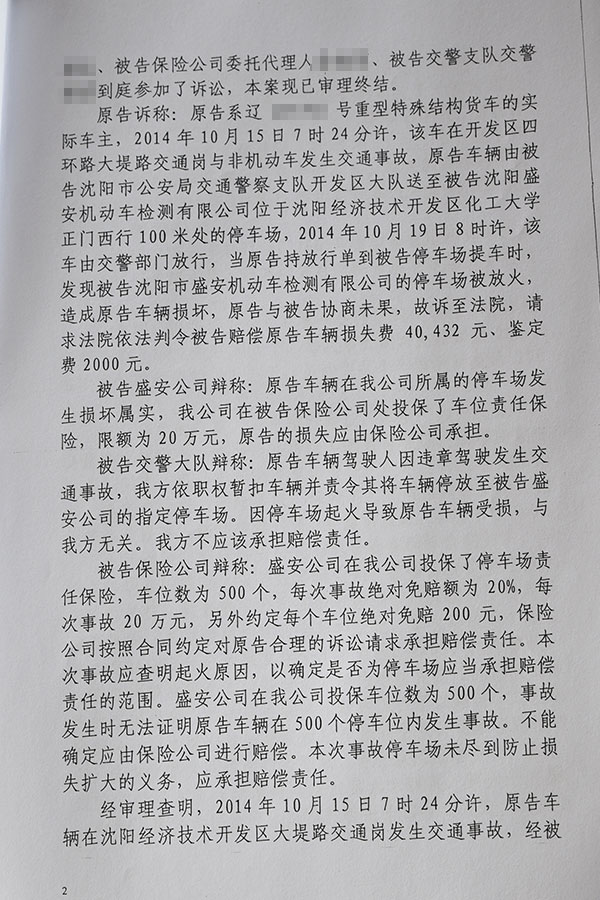 、被告保险公司委托代理人、被告交警支队交警
到庭参加了诉讼，本案现已审理终结。
原告诉称：原告系辽 号重型特殊结构货车的实
际车主，2014年10月15日7时24分许，该车在开发区四
环路大堤路交通岗与非机动车发生交通事故，原告车辆由被
告沈阳市公安局交通警察支队开发区大队送至被告沈阳盛
安机动车检测有限公司位于沈阳经济技术开发区化工大学
正门西行100米处的停车场，2014年10月19日8时许，该
车由交警部门放行，当原告持放行单到被告停车场提车时，
发现被告沈阳市盛安机动车检测有限公司的停车场被放火，
造成原告车辆损坏，原告与被告协商未果，故诉至法院，请
求法院依法判令被告赔偿原告车辆损失费 40,432 元、鉴定
费2000元。
被告盛安公司辩称：原告车辆在我公司所属的停车场发
生损坏属实，我公司在被告保险公司处投保了车位责任保
险，限额为20万元，原告的损失应由保险公司承担。
被告交警大队辩称：原告车辆驾驶人因违章驾驶发生交
通事故，我方依职权暂扣车辆并责令其将车辆停放至被告盛
安公司的指定停车场。因停车场起火导致原告车辆受损，与
我方无关。我方不应该承担赔偿责任。
被告保险公司辩称：盛安公司在我公司投保了停车场责
任保险，车位数为500个，每次事故绝对免赔额为20%，每
次事故20万元，另外约定每个车位绝对免赔200元，保险
公司按照合同约定对原告合理的诉讼请求承担赔偿责任。本
次事故应查明起火原因，以确定是否为停车场应当承担赔偿
责任的范围。盛安公司在我公司投保车位数为500个，事故
发生时无法证明原告车辆在500个停车位内发生事故。不能
确定应由保险公司进行赔偿。本次事故停车场未尽到防止损
失扩大的义务，应承担赔偿责任。
经审理查明，2014年10月15日7时24分许，原告车
辆在沈阳经济技术开发区大堤路交通岗发生交通事故，经被
2